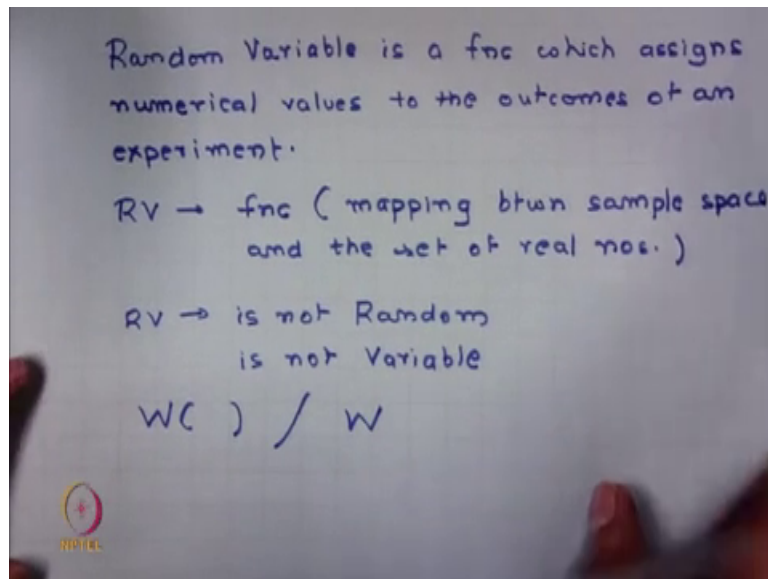 Random Variable is a fnc which assigns
numerical values to the outcomes of an
experiment.
RV → fnc ( mapping btwn sample space
and the set of real nos. )
RV → is not Random
is not Variable
W( ) / W
NPTEL